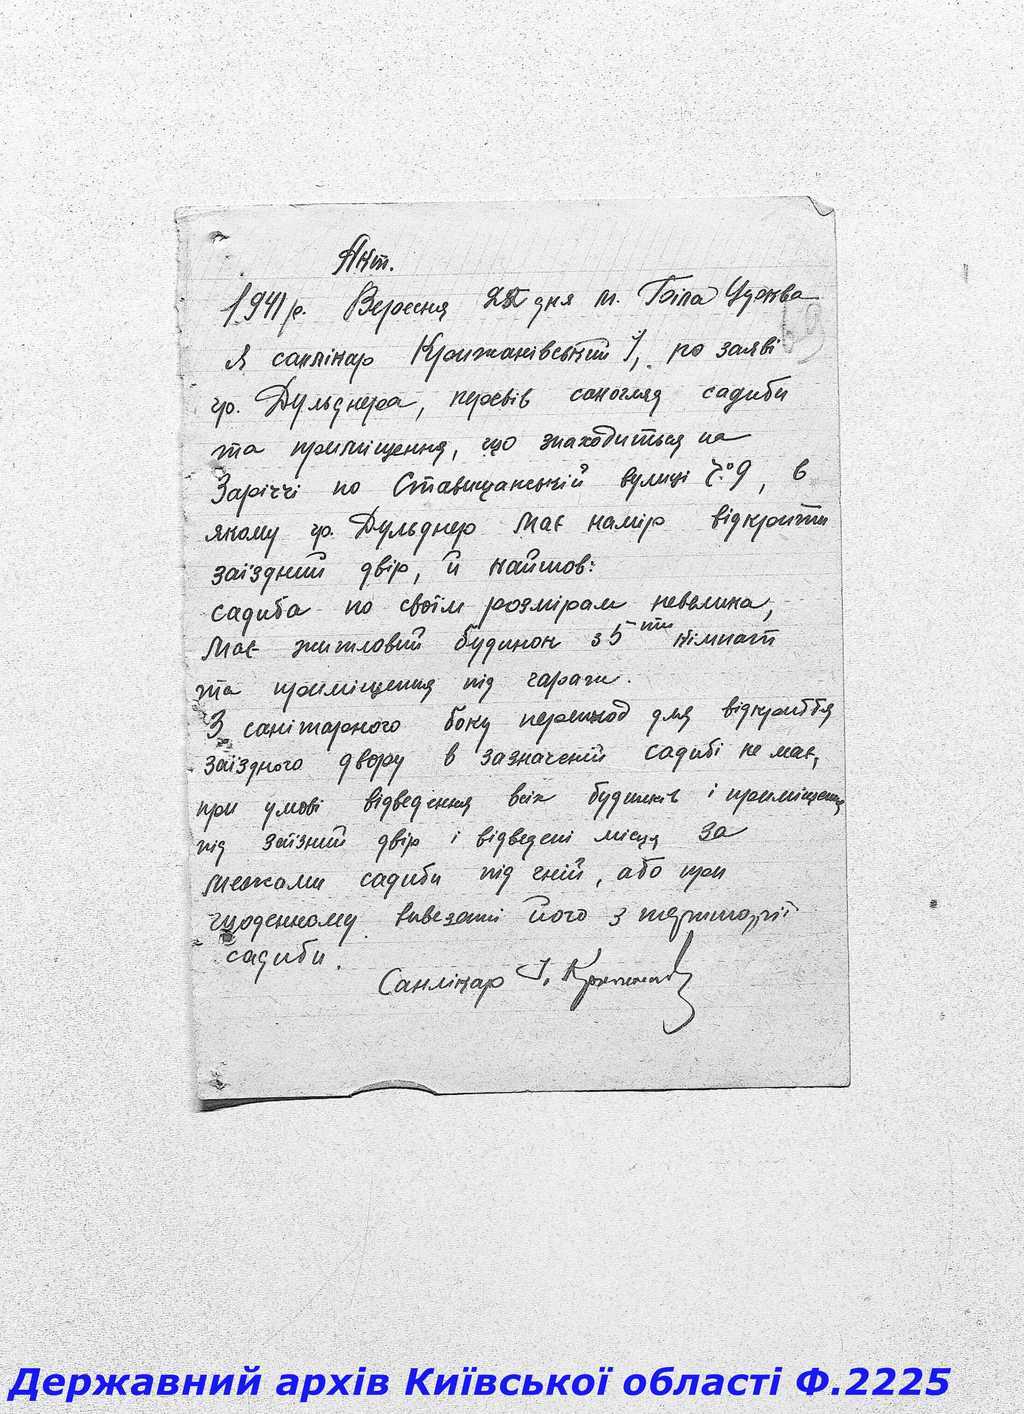 Акт.
1941 р. Вересня дня м. Біла Церква
69
Я санлікар Крижанівський І, по заяві
гр. Дульднера, перевів саногляд садиби
та приміщення, що знаходиться на
Заріччі по Ставищанській вулиці ч. 9, в
якому гр. Дульднер має намір відкрити
заїздний двір, й найшов:
садиба по своїм розмірам невелика,
має житловий будинок з 5-ти кімнат
та приміщення під гаражи.
З санітарного боку перешкод для відкриття
заїздного двору в зазначеній садибі не має,
при умові відведення всіх будинків і приміщення
під заїзний двір і відведені місця за
межами садиби під гній, або при
щоденному вивезенні його з території
садиби.
Санлікар І.
Державний архів Київської області Ф.2225